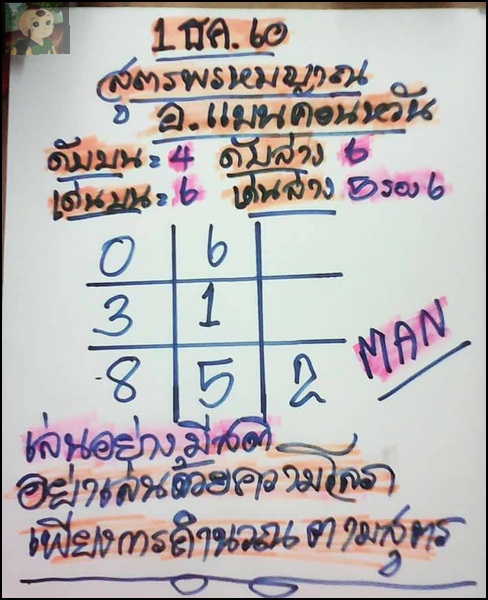 1 ธค. ๖๐
สูตรพรหมญาณ
อ.แมนคอนหวัน
ดับบน = 4 ดับล่าง 6
เด่นบน = 6 เด่นล่าง 5 รอง 6
0 6
3 1
8 5 2
MAN
เล่นอย่างมีสติ
อย่าเล่นด้วยความโลภ
เพียงการคำนวณตามสูตร